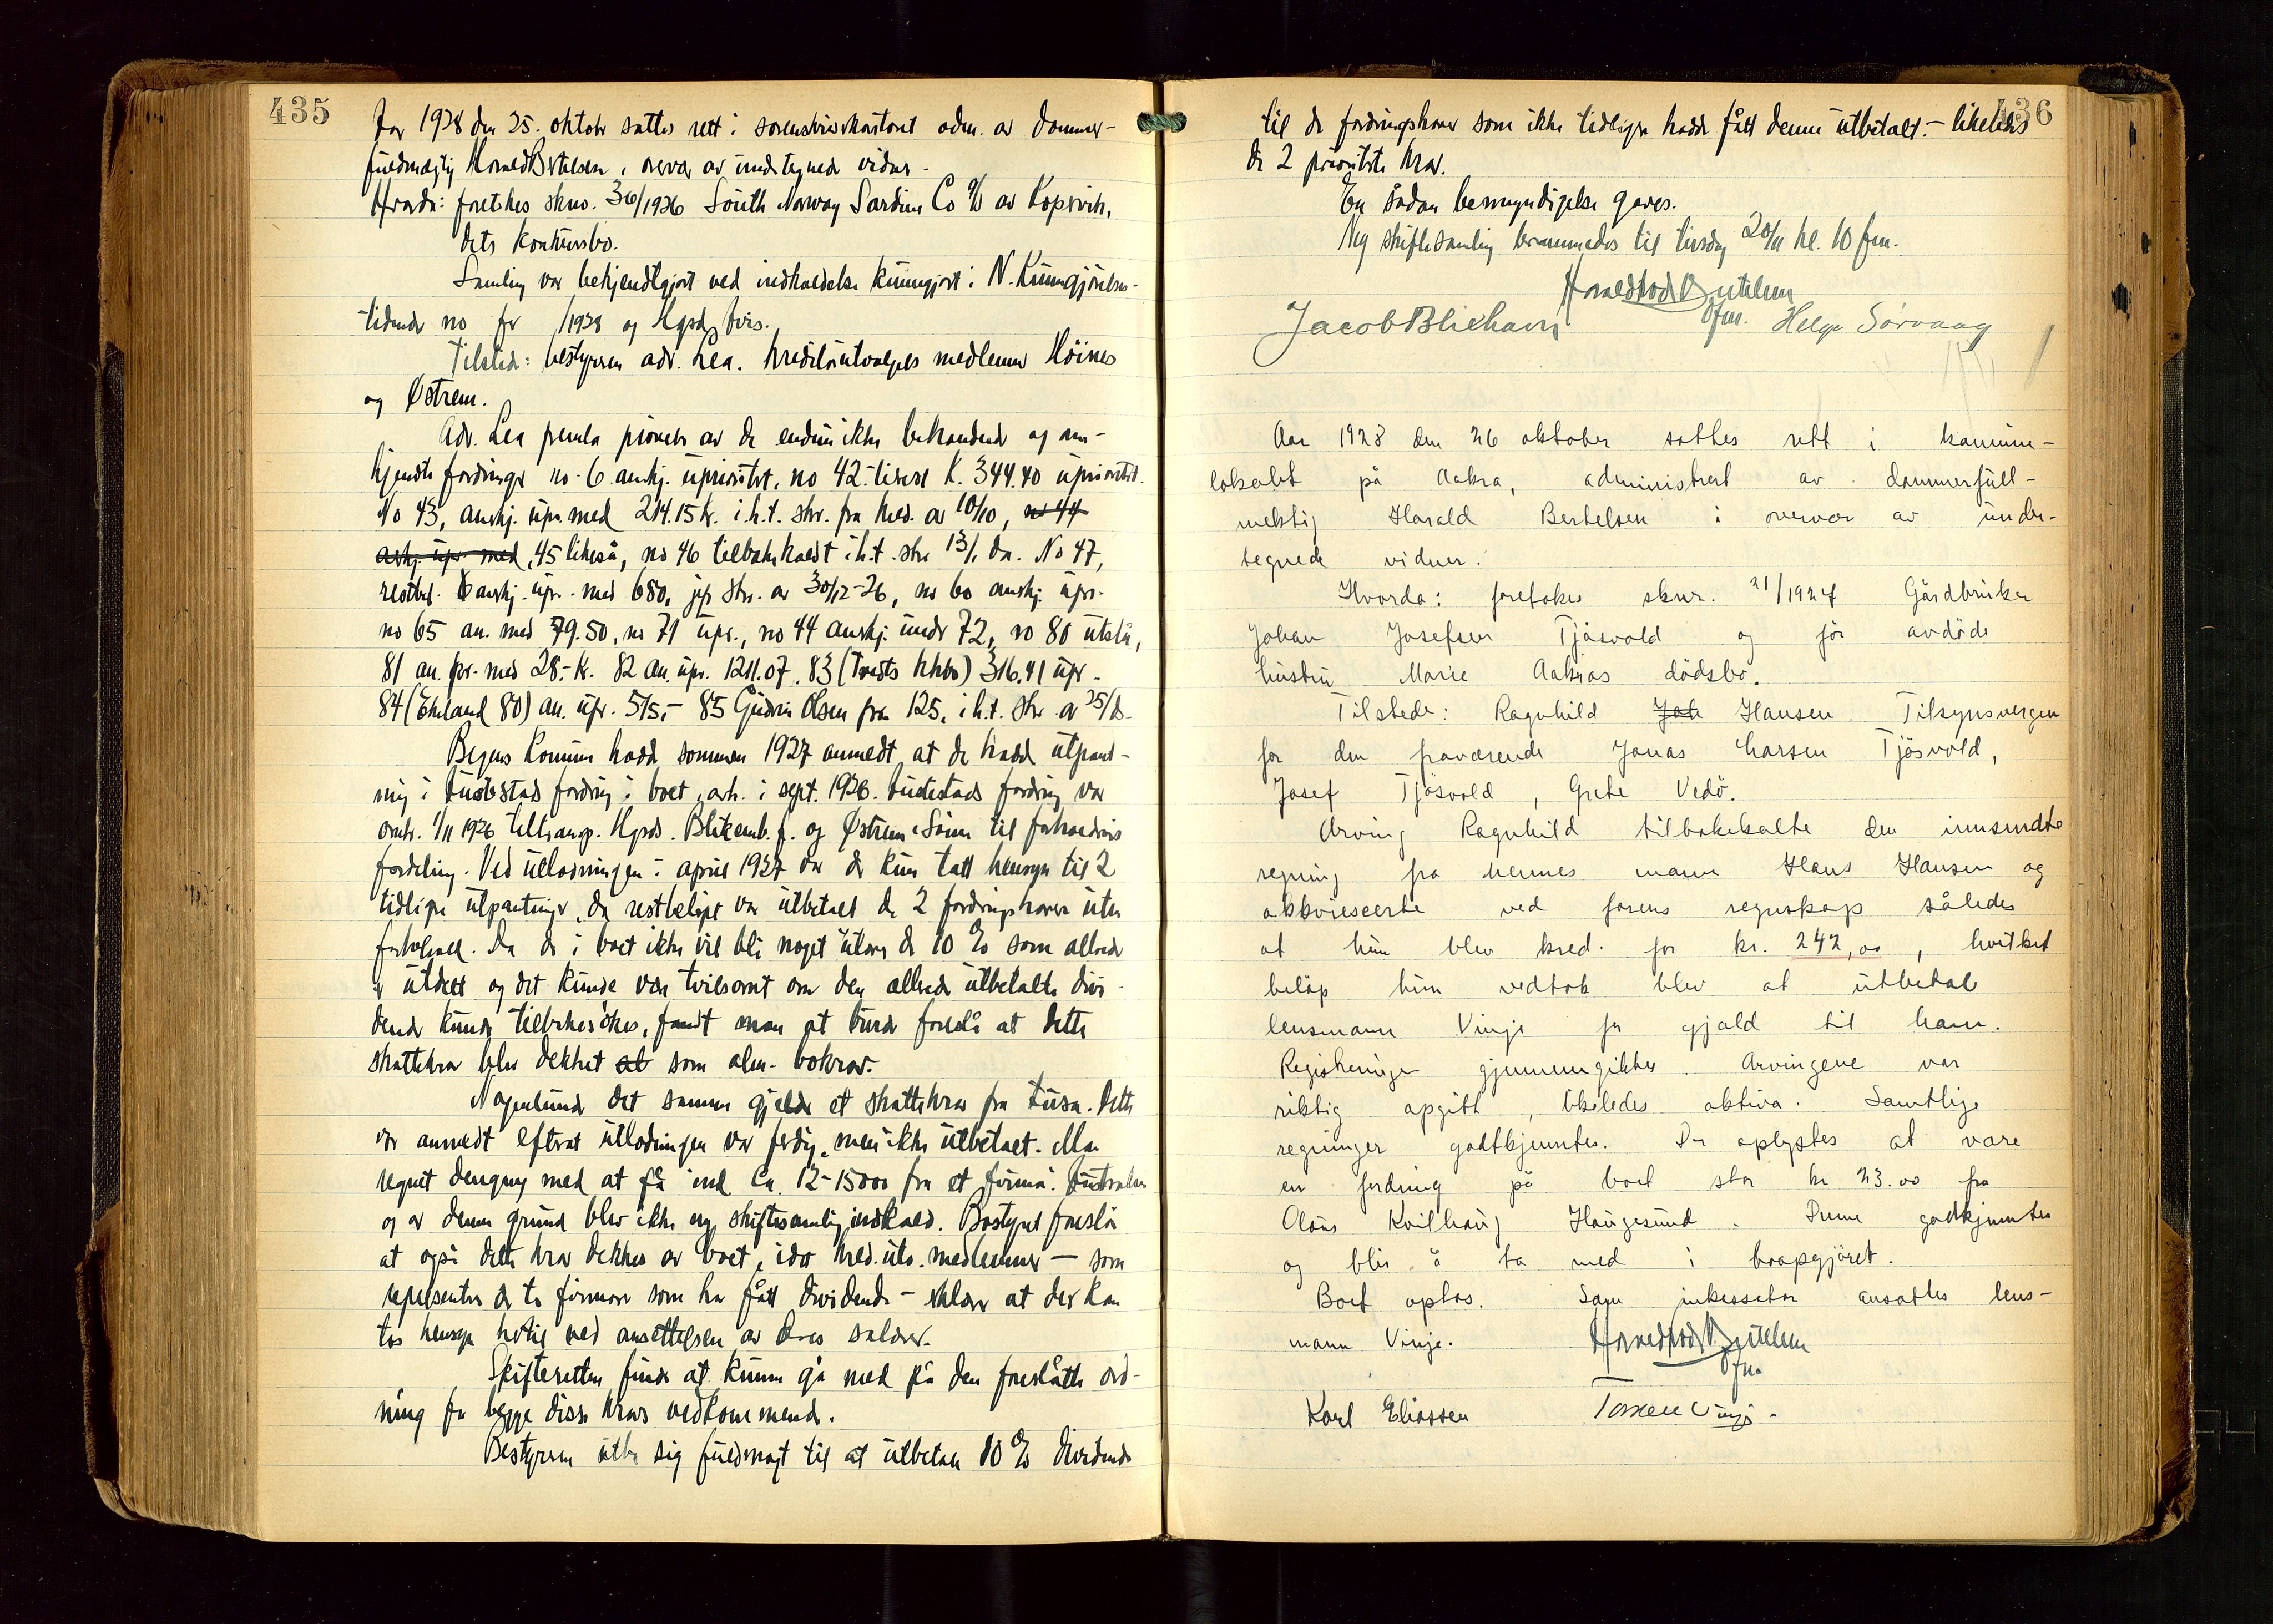 435
Aar 1928 den 25. oktober sattes rett i sorenskriverkontoret adm. av dommer-
fuldmægtig Harald Bertelsen i overvær av undertegnede vidner.
Hvorda: foretokes skno. 36/1926 South Norway Sardine Co A/S av Kopervik,
dets konkursbo.
Samling var bekjendtgjort ved indkaldelse kunngjort i N. Kunngjørelses-
tidende no for /1928 og Hgsds Avis.
Tilstede: bestyreren adv. Lea. kreditorutvalgets medlemmer Höines
og Østrem.
Adv. Lea fremla prøvelse av de endnu ikke behandlede og an-
kjendte fordringer no. 6 anerkj. uprioritert, no 42 - K. 344.40 uprioritert.
No 43, anerkj. upr. med 214.15 kr. i.h.t. skr. fra kred. av 10/10, no 44
anerkj. upr. med, 45 likeså, no 46 tilbakekaldt i.h.t. skr 13/1 da. No 47,
restbel. anerkj. upr. med 680, jfr skr. av 30/12-26, no 60 anerkj. upr.
no 65 an. med 79.50, no 71 upr., no 44 anerkj. under 72, no 80 utstår,
81 an. pr. med 28.- kr. 82 an. upr. 1211.07. 83 ( ) 316.41 upr.
84 (Ekeland 80) an. upr. 515,- 85 Gudrun Olsen fra 125, i.h.t. skr av 25/
Bergens Komune hadde sommeren 1927 anmeldt at de hadde utpant-
ning i fordring i boet, avh. i sept. 1926. fordring var
omtr. 1/11 1926 til transp. Hgsds. Blikemb.f. og Østrem & Sönn til forholdsvis
fordeling. Ved utlodningen i april 1927 var der kun tatt hensyn til 2
tidligere utpantninger, da restbeløpet var utbetalt de 2 fordringshavere uten
forbehold. Da der i boet ikke vil bli noget utover de 10 % som allerede
er utdelt og det kunde være tvilsomt om den allerede utbetalte divi-
dende kunde tilbakesøkes, fandt man at burde foreslå at dette
skattekrav blev dekket at som alm. bokrav.
Nøyaktig det samme gjelder et skattekrav fra . Dette
var anmeldt efterat utlodningen var ferdig, men ikke utbetalt. Man
regnet dengang med at få ind ca. 12-15000 fra et firma i Australien
og av denne grund blev ikke ny skiftesamling indkaldt. Bostyret foreslår
at også dette krav dekkes av boet, idet kred.utv. medlemmer - som
representerer de to firmaer som har fått dividende - erklærer at der kan
tas hensyn hertil ved ansettelsen av deres salærer.
Skifteretten finder at kunne gå med på den foreslåtte ord-
ning for begge disse kravs vedkommende.
Bestyreren utber sig fuldmagt til at utbetale 10 % dividende
436
til de fordringshavere som ikke tidligere hadde fått denne utbetalt. - likeledes
de 2 prioriterte krav.
En sådan bemyndigelse gaves.
Ny skiftesamling berammedes til tirsdag 20/11 kl. 10 fm.
Harald Bertelsen
fm.
Jacob Blikhavn
Helge Sørvaag
Aar 1928 den 26 oktober sattes rett i kommune-
lokalet på Aakra, administrert av dommerfull-
mektig Harald Bertelsen i overvær av under-
tegnede vidner.
Hvorda: foretokes sknr. 21/1927 Gårdbruker
Johan Josefsen Tjösvold og før avdöde
hustru Marie Aakras dödsbo.
Tilstede: Ragnhild Joh Hansen. Tilsynsvergen
for den fraværende Jonas Larsen Tjösvold,
Josef Tjösvold, Grete Vedö.
Arving Ragnhild tilbakekalte den innsendte
regning fra hennes mann Hans Hansen og
akkviescerte ved farens regnskap således
at hun blev kred. for kr. 242,00, hvilket
beløp hun vedtok blev at utbetale
lensmann Vinje for gjæld til ham.
Registeringen gjennemgikkes. Arvingene var
riktig opgitt, likeledes aktiva. Samtlige
regninger godtkjentes. Der oplystes at være
en fordring på boet stor kr 23.00 fra
Olaus Kvilhaug Haugesund. Denne godkjentes
og blir å ta med i boopgjöret.
Boet optas. Som inkassator ansattes lens-
mann Vinje.
Harald Bertelsen
fm.
Karl Eliassen
Torkell Vinje.